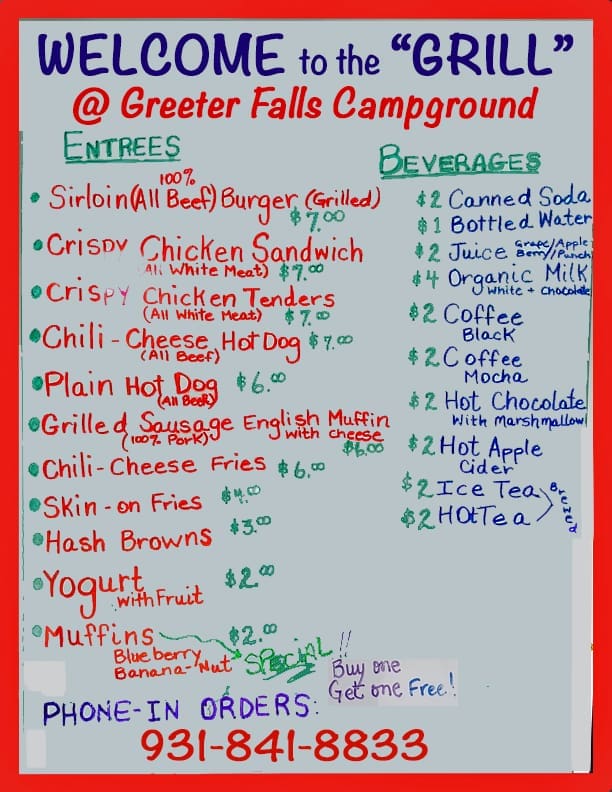 WELCOME to the “GRILL”
@ Greeter Falls Campground
ENTREES
• Sirloin (All 100% Beef) Burger (Grilled)
$7.00
• Crispy Chicken Sandwich
(All White Meat) $7.00
• Crispy Chicken Tenders
(All White Meat) $7.00
• Chili-Cheese Hot Dog $7.00
(All Beef)
• Plain Hot Dog $6.00
(All Beef)
• Grilled Sausage English Muffin
(100% Pork) with cheese
$6.00
• Chili-Cheese Fries $6.00
• Skin-on Fries $4.00
• Hash Browns $3.00
• Yogurt $2.00
with Fruit
• Muffins $2.00
Blueberry
Banana-Nut
SPECIAL!!
Buy one
Get one Free!
BEVERAGES
$2 Canned Soda
$1 Bottled Water
$2 Juice Grape/Apple
Berry/Punch
$4 Organic Milk
White + Chocolate
$2 Coffee
Black
$2 Coffee
Mocha
$2 Hot Chocolate
With Marshmallow
$2 Hot Apple
Cider
$2 Ice Tea
$2 HOt Tea
Brewed
PHONE-IN ORDERS:
931-841-8833